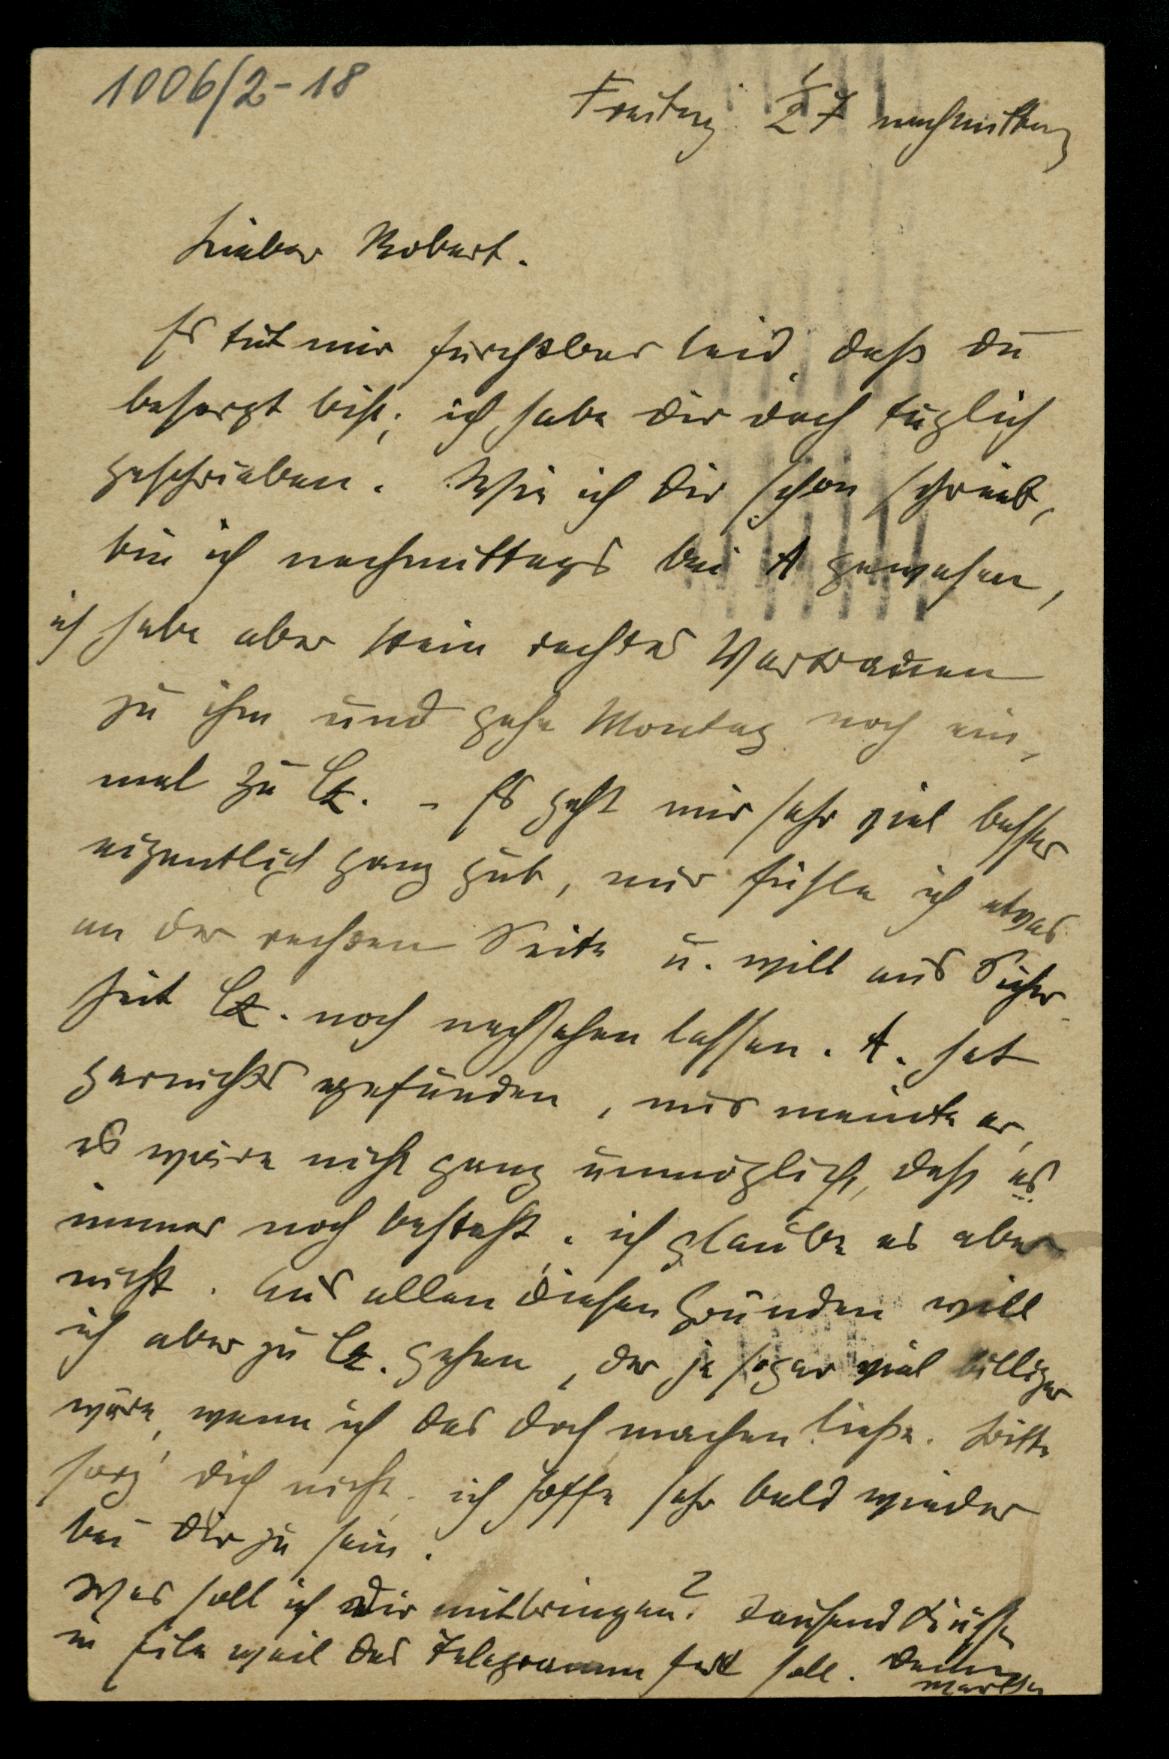 1006/2-18
Freitag ½ 7 nachmittag
Lieber Robert.
Es tut mir furchtbar leid, daß du
besorgt bist; ich habe dir doch täglich
geschrieben. Wie ich dir schon schrieb,
bin ich nachmittags bei A gewesen,
ich habe aber kein rechtes Vertrauen
zu ihm und gehe Montag noch ein,
mal zu . - Es geht mir sehr viel besser
eigentlich ganz gut, nur fühle ich etwas
an der rechten Seite u. will aus Sicher
heit . noch nachsehen lassen. A. hat
garnichts gefunden, nur meinte er,
es wäre nicht ganz unmöglich, daß es
immer noch besteht. ich glaube es aber
nicht. Aus allen diesen Gründen will
ich aber zu . gehen, der ja sogar viel billiger
wäre, wenn ich das doch machen ließe. Bitte
sorg' dich nicht. ich hoffe sehr bald wieder
bei Dir zu sein.
Was soll ich Dir mitbringen? Tausend Küsse
in Eile weil das Telegramm fort soll. Deine
Martha